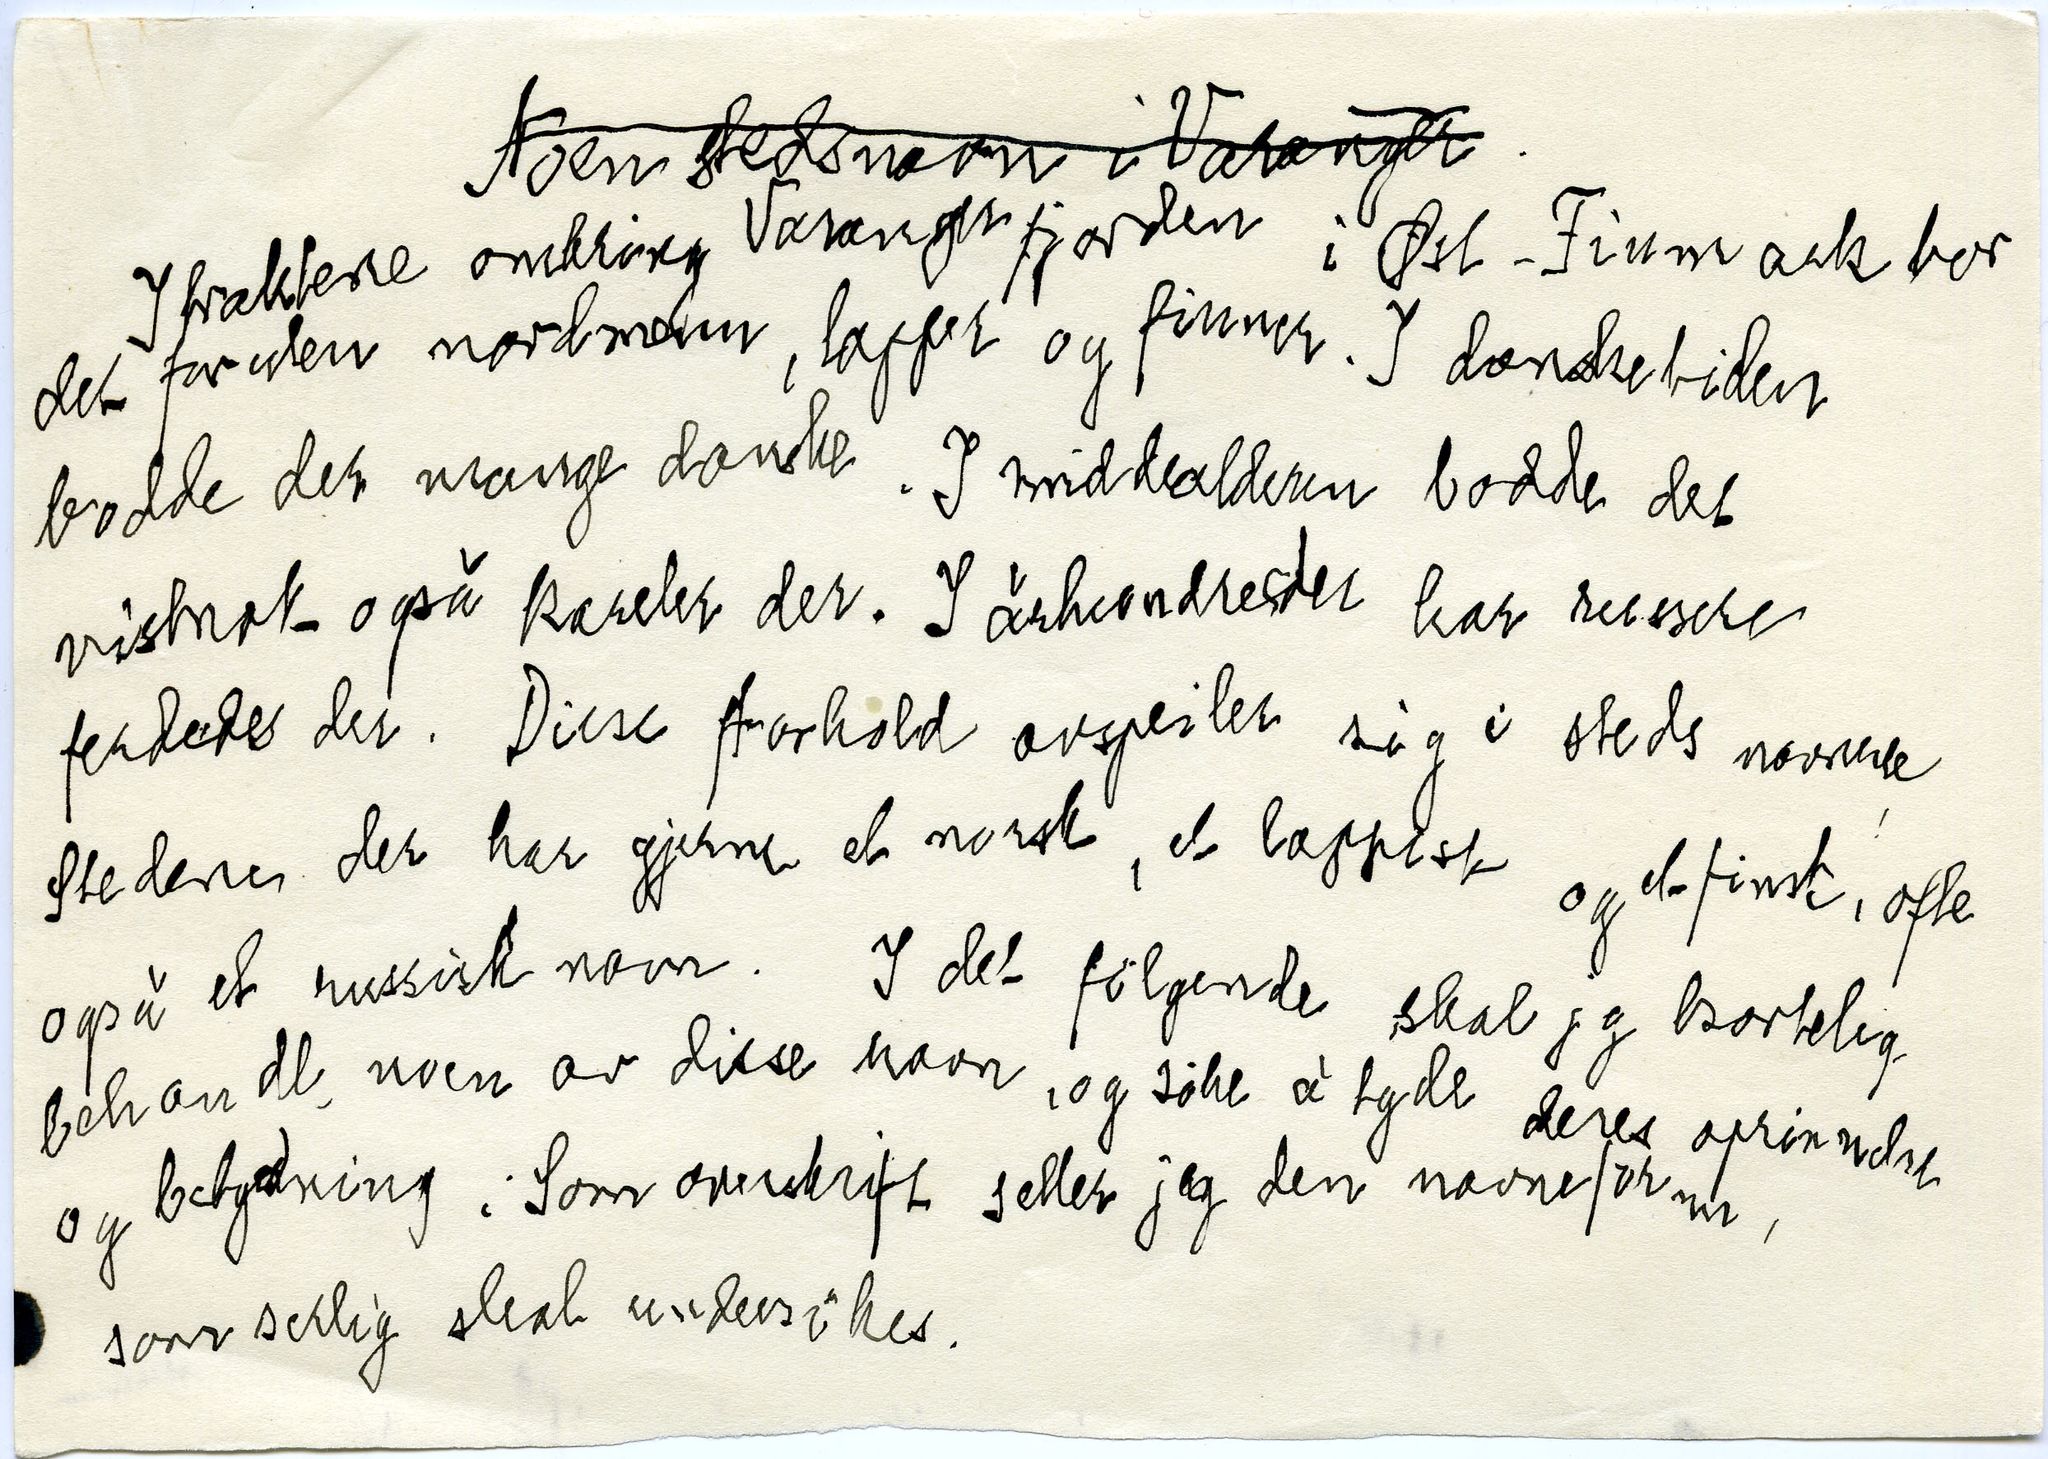 Noen stedsnavn i Varanger.
I traktene omkring Varangerfjorden i Øst-Finmark bor
det foruden nordmenn, lapper og finner. I dansketiden
bodde der mange danske. I middealderen bodde det
vistnok også kareler der. I århundreder har russere
ferdedes der. Disse forhold avspeiler sig i stedsnavnene,
Stedene der har gjerne et norsk, et lappisk og et finsk, ofte
også et russisk navn. I det følgende skal jeg kortelig
behandle noen av disse navn, og söke å tyde deres oprinnelse
og betydning. Som overskrift setter jeg den navneform,
som serlig skal undersökes.